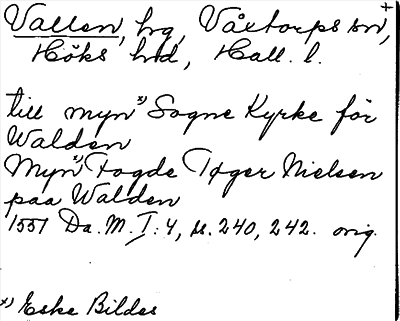 Vallen, hg, Våxtorps sn,
Höks hd, Hall. l.
till myn x) Sogne Kyrke för
Walden
Myn x) Fogde Tøger Nielsen
paa Walden
1551 Da. M. I: 4, s. 240, 242. orig.
x) Eske Bildes